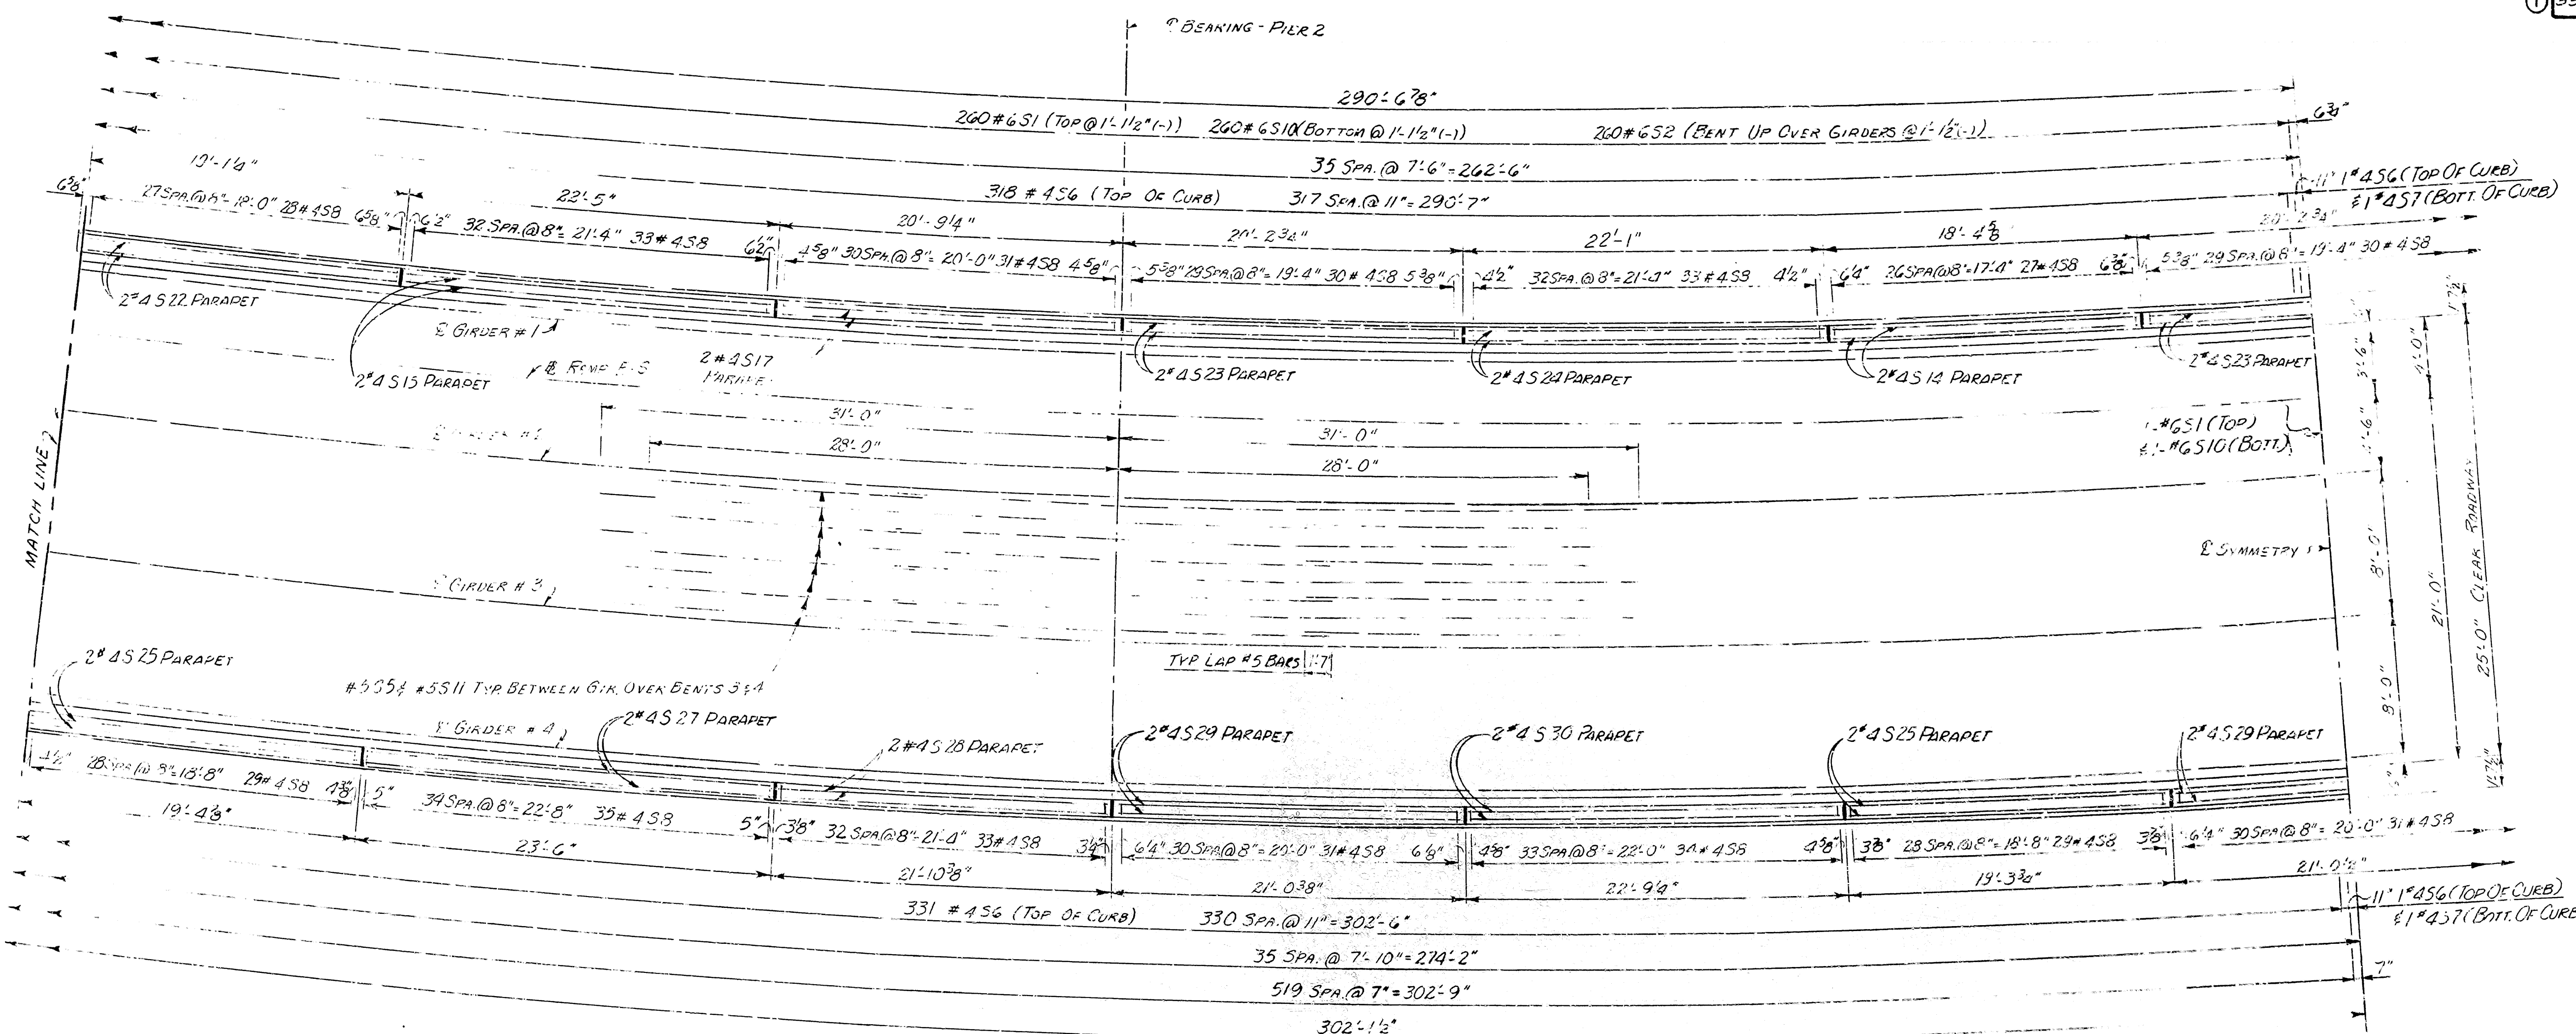 ℄ BEARING - PIER 2
290'-6⅞"
6¾"
260#6S1 (TOP @ 1'-1½"(-)) 260#6S10(BOTTOM @ 1'-1½"(-)) 260#6S2 (BENT UP OVER GIRDERS @ 1'-1½"(-))
35 SPA. @ 7'-6" = 262'-6"
318 # 4S6 (TOP OF CURB) 317 SPA. @ 11" = 290'-7"
11" 1#4S6 (TOP OF CURB)
& 1#4S7 (BOTT. OF CURB)
19'-1¼"
22'-5"
20'-9¼"
20'-2¾"
22'-1"
18'-4⅝"
20'-2¾"
6⅝"
27 SPA. @ 8" = 18'-0" 28#4S8 6⅝"
6½" 32 SPA. @ 8" = 21'-4" 33#4S8 6½"
4⅝" 30 SPA. @ 8" = 20'-0" 31#4S8 4⅝"
5⅜" 29 SPA. @ 8" = 19'-4" 30#4S8 5⅜"
4½" 32 SPA. @ 8" = 21'-4" 33#4S8 4½"
6¼" 26 SPA @ 8" = 17'-4" 27#4S8 6⅜"
5⅜" 29 SPA. @ 8" = 19'-4" 30#4S8
2#4 S22 PARAPET
℄ GIRDER #1
2#4 S15 PARAPET
2#4S17
2#4 S23 PARAPET
2#4 S24 PARAPET
2#4 S14 PARAPET
2#4 S23 PARAPET
1'-7½"
3'-6"
4'-0"
31'-0"
31'-0"
28'-0"
28'-0"
1-#6S1 (TOP)
& 1-#6S10 (BOTT.)
MATCH LINE
℄ SYMMETRY
8'-0"
21'-0"
25'-0" CLEAR ROADWAY
8'-0"
1'-7½"
℄ GIRDER # 3
TYP LAP #5 BARS 1'-7"
2#4S25 PARAPET
#5S5 & #5S11 TYP. BETWEEN GIR. OVER BENTS 3 & 4
℄ GIRDER # 4
2#4S27 PARAPET
2#4S28 PARAPET
2#4S29 PARAPET
2#4 S30 PARAPET
2#4S25 PARAPET
2#4S29 PARAPET
4½" 28 SPA @ 8" = 18'-8" 29#4S8 4⅜"
5" 34 SPA. @ 8" = 22'-8" 35#4S8 5"
3⅛" 32 SPA @ 8" = 21'-4" 33#4S8 3¼"
6¼" 30 SPA @ 8" = 20'-0" 31#4S8 6⅛"
4⅝" 33 SPA @ 8" = 22'-0" 34#4S8 4⅝"
3⅞" 28 SPA. @ 8" = 18'-8" 29#4S8 3⅞"
6¼" 30 SPA @ 8" = 20'-0" 31#4S8
19'-4⅞"
23'-6"
21'-10⅜"
21'-0⅜"
22'-9¼"
19'-3¾"
21'-0½"
331 # 4S6 (TOP OF CURB) 330 SPA. @ 11" = 302'-6"
11" 1#4S6 (TOP OF CURB)
& 1#4S7 (BOTT. OF CURB
35 SPA. @ 7'-10" = 274'-2"
519 SPA. @ 7" = 302'-9"
7"
302'-1½"